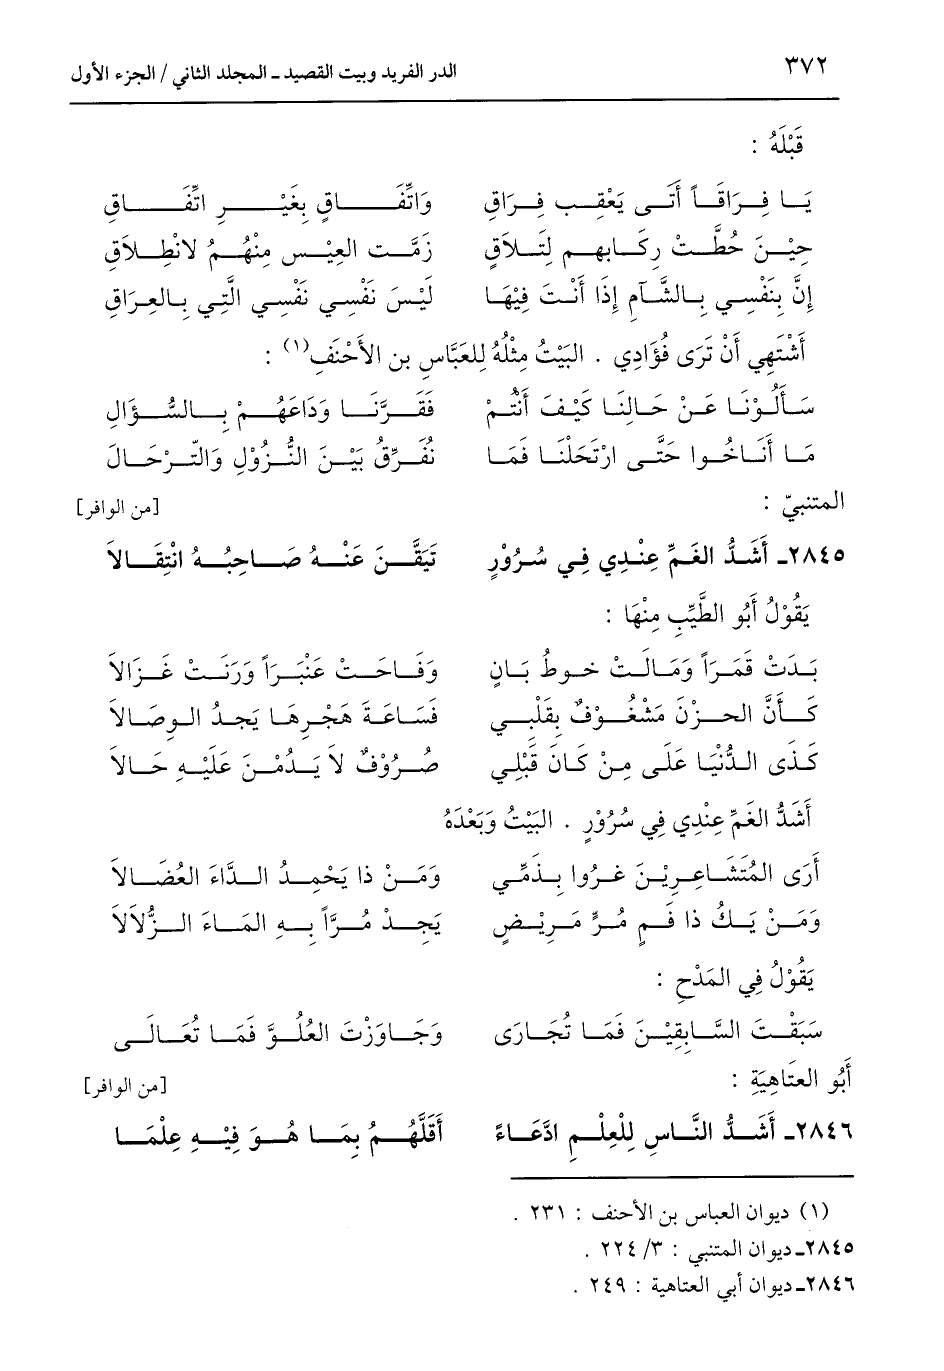 ٣٧٢ الدر الفريد وبيت القصيد ـ المجلد الثاني / الجزء الأول
قَبْلَهُ :
يَا فِرَاقَاً أَتَى يَعْقِبِ فِرَاقِ وَاتِّفَاقٍ بِغَيْرِ اتِّفَاقِ
حِيْنَ حُطَّتْ رِكَابهم لَتَلاَقٍ زَمَّت العِيْس مِنْهُمُ لانْطِلاَقِ
إِنَّ بِنَفْسِي بِالشَّآمِ إِذَا أَنْتَ فِيْهَا لَيْسَ نَفْسِي نَفْسِي الَّتِي بِالعِرَاقِ
أَشْتَهِي أَنْ تَرَى فُؤَادِي . البَيْتُ مِثْلُهُ لِلعَبَّاسِ بن الأَحْنَفِ(١) :
سَأَلُوْنَا عَنْ حَالِنَا كَيْفَ أَنْتُمْ فَقَرَّنَا وَدَاعَهُمْ بِالسُّؤَالِ
مَا أَنَاخُوا حَتَّى ارْتَحَلْنَا فَمَا نُفَرِّقُ بَيْنَ النُّزُوْلِ وَالتّرْحَالَ
المتنبيّ : [من الوافر]
٢٨٤٥ـ أَشَدُّ الغَمِّ عِنْدِي فِي سُرُوْرٍ تَيَقَّنَ عَنْهُ صَاحِبُهُ انْتِقَالاَ
يَقُوْلُ أَبُو الطَّيِّبِ مِنْهَا :
بَدَتْ قَمَرَاً وَمَالَتْ خوطُ بَانٍ وَفَاحَتْ عَنْبَرَاً وَرَنَتْ غَزَالاَ
كَأَنَّ الحزْنَ مَشْغُوْفٌ بِقَلْبِي فَسَاعَةَ هَجْرِهَا يَجدُ الوِصَالاَ
كَذَى الدُّنْيَا عَلَى مِنْ كَانَ قَبْلِي صُرُوْفٌ لاَ يَدُمْنَ عَلَيْهِ حَالاَ
أَشَدُّ الغَمِّ عِنْدِي فِي سُرُوْرٍ . البَيْتُ وَبَعْدَهُ
أَرَى المُتَشَاعِرِيْنَ غرُوا بِذَمِّي وَمَنْ ذَا يَحْمِدُ الدَّاءَ العُضَالاَ
وَمَنْ يَكُ ذَا فَمٍ مُرٍّ مَرِيْضٍ يَجِدْ مُرَّاً بِهِ المَاءَ الزُّلاَلاَ
يَقُوْلُ فِي المَدْحِ :
سَبَقْتَ السَّابِقِيْنَ فَمَا تُجَارَى وَجَاوَزْتَ العُلُوَّ فَمَا تُعَالَى
أَبُو العتَاهِيَةِ : [من الوافر]
٢٨٤٦ـ أَشَدُّ النَّاسِ لِلْعِلْمِ ادِّعَاءً أَقَلَّهُمُ بِمَا هُوَ فِيْهِ عِلْمَا
(١) ديوان العباس بن الأحنف : ٢٣١ .
٢٨٤٥ـ ديوان المتنبي : ٣/ ٢٢٤ .
٢٨٤٦ـ ديوان أبي العتاهية : ٢٤٩ .